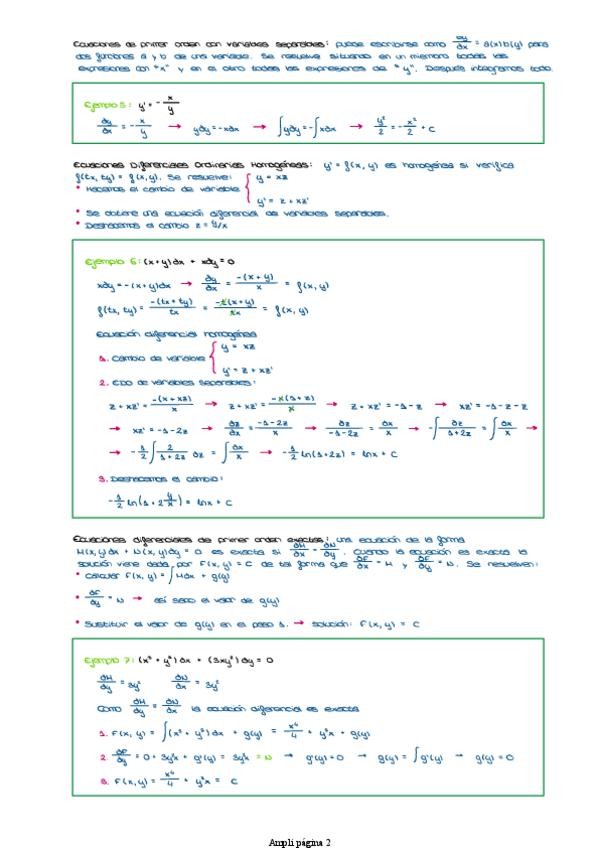 Ecuaciones de primer orden con variables separables: puede escribirse como dy/dx = a(x)b(y) para
dos funciones a y b de una variable. Se resuelve situando en un miembro todas las
expresiones con "x" y en el otro todas las expresiones de "y". Después integramos todo.
Ejemplo 5: y' = - x/y
dy/dx = - x/y → ydy = -xdx → ∫ydy = -∫xdx → y²/2 = - x²/2 + C
Ecuaciones Diferenciales Ordinarias Homogéneas: y' = f(x, y) es homogénea si verifica
f(tx, ty) = f(x, y). Se resuelve: { y = xz
• Hacemos el cambio de variable
y' = z + xz'
• Se obtiene una ecuación diferencial de variables separables.
• Deshacemos el cambio z = y/x
Ejemplo 6: (x+y)dx + xdy = 0
xdy = -(x+y)dx → dy/dx = -(x+y)/x = f(x, y)
f(tx, ty) = -(tx + ty)/tx = -t(x+y)/tx = f(x, y)
Ecuación diferencial homogénea
1. Cambio de variable { y = xz
y' = z + xz'
2. EDO de variables separables:
z + xz' = -(x + xz)/x → z + xz' = -x(1 + z)/x → z + xz' = -1 - z → xz' = -1 - z - z
→ xz' = -1 - 2z → dz/dx = -1-2z/x → dz/-1-2z = dx/x → -∫ dz/1+2z = ∫ dx/x →
→ - 1/2 ∫ 2/1+2z dz = ∫ dx/x → - 1/2 ln(1+2z) = lnx + C
3. Deshacemos el cambio:
- 1/2 ln(1 + 2 y/x) = lnx + C
Ecuaciones diferenciales de primer orden exactas: una ecuación de la forma
M(x,y)dx + N(x,y)dy = 0 es exacta si ∂M/∂x = ∂N/∂y. Cuando la ecuación es exacta la
solución viene dada por F(x, y) = C de tal forma que ∂F/∂x = M y ∂F/∂y = N. Se resuelven:
• Calcular F(x, y) = ∫Mdx + g(y)
• ∂F/∂y = N → así saco el valor de g(y)
• Sustituir el valor de g(y) en el paso 1. → solución: F(x, y) = C
Ejemplo 7: (x³ + y³)dx + (3xy²)dy = 0
∂M/∂y = 3y² ∂N/∂x = 3y²
Como ∂M/∂y = ∂N/∂x la ecuación diferencial es exacta
1. F(x, y) = ∫(x³ + y³)dx + g(y) = x⁴/4 + y³x + g(y)
2. ∂F/∂y = 0 + 3y²x + g'(y) = 3y²x = N → g'(y) = 0 → g(y) = ∫g'(y) → g(y) = 0
3. F(x, y) = x⁴/4 + y³x = C
Ampli página 2